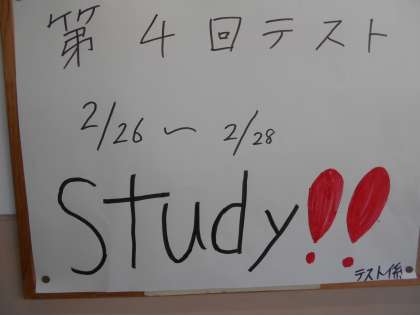 第4回テスト
2/26 〜 2/28
Study!!
テスト係